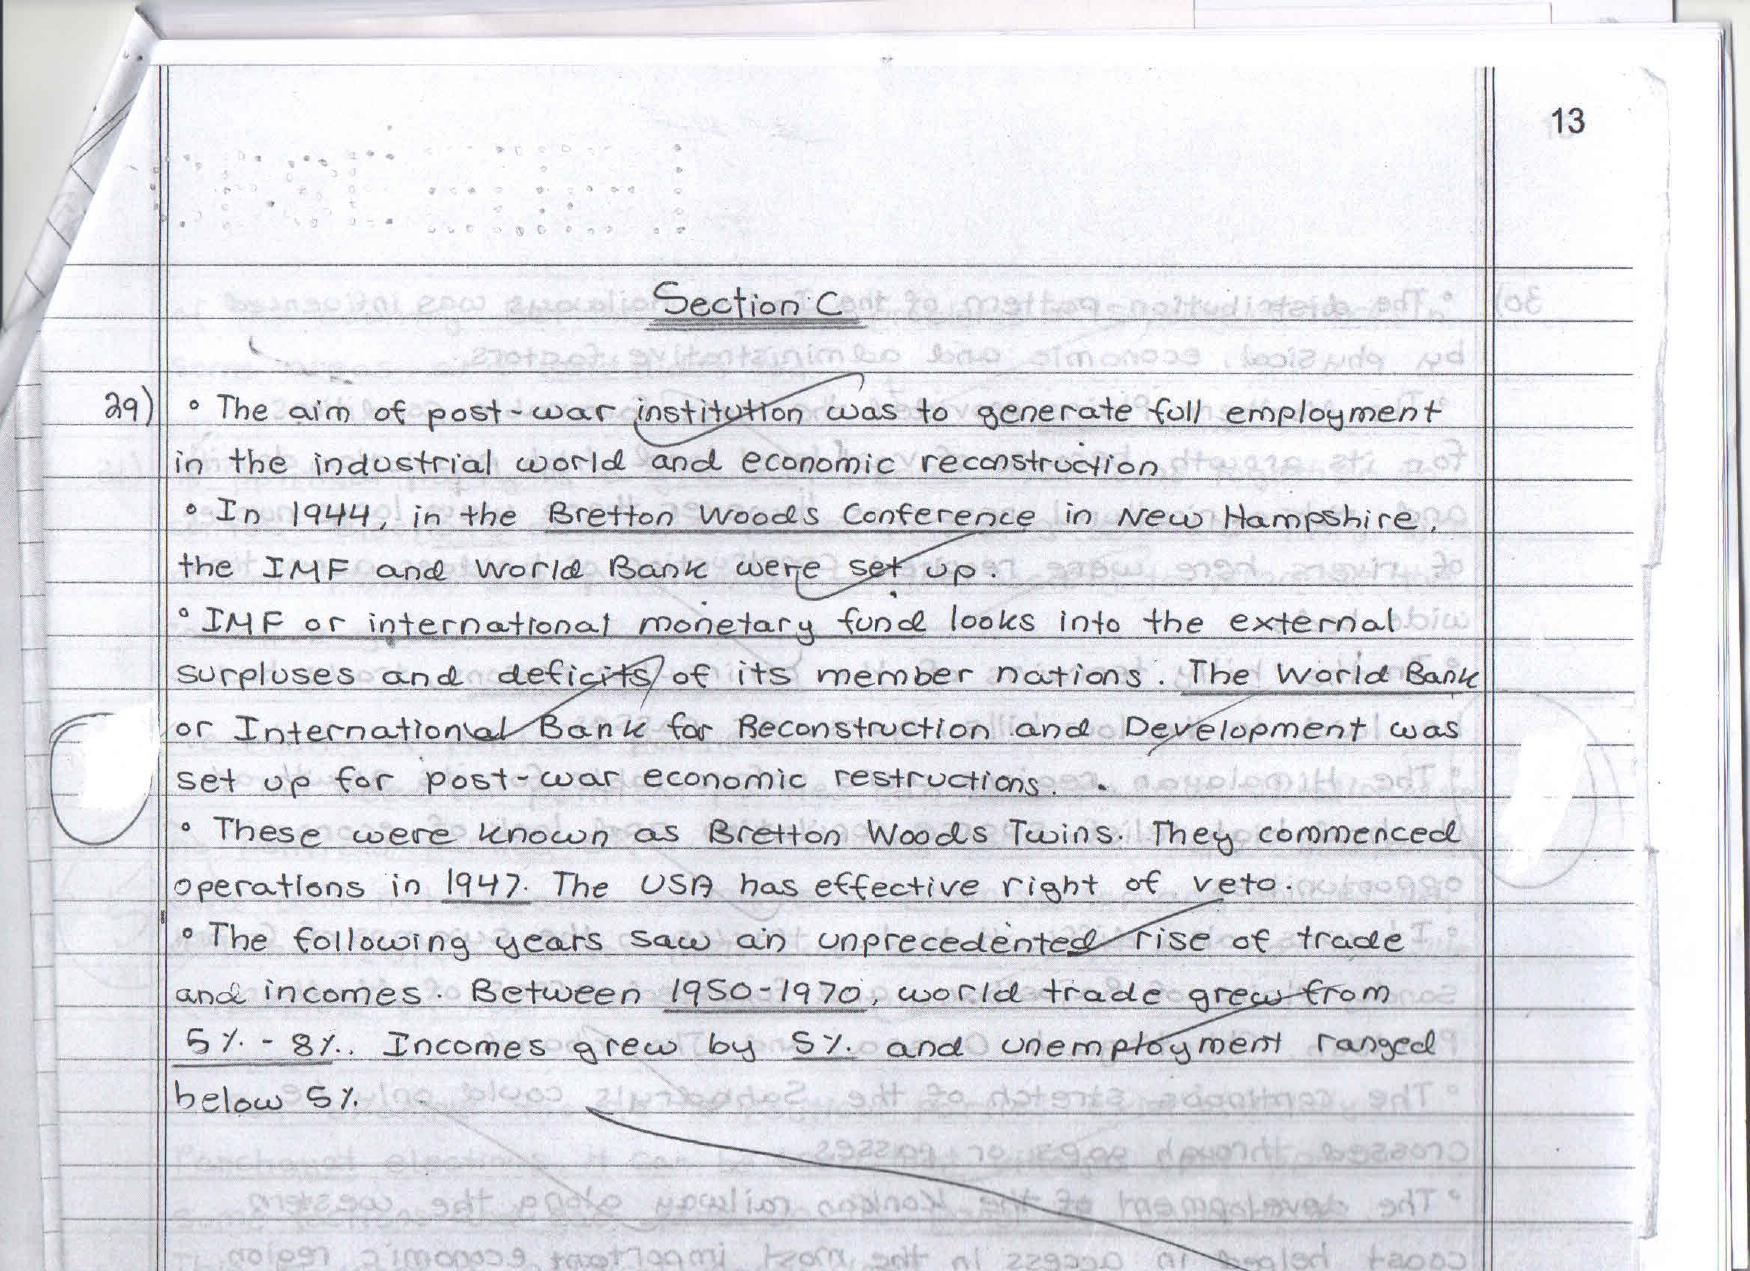 13
Section C
29) • The aim of post-war institution was to generate full employment
in the industrial world and economic reconstruction
• In 1944, in the Bretton Woods Conference in New Hampshire,
the IMF and World Bank were set up.
• IMF or international monetary fund looks into the external
surpluses and deficits of its member nations. The World Bank
or International Bank for Reconstruction and Development was
set up for post-war economic restructions.
• These were known as Bretton Woods Twins. They commenced
operations in 1947. The USA has effective right of veto.
• The following years saw an unprecedented rise of trade
and incomes. Between 1950-1970, world trade grew from
5% - 8%. Incomes grew by 5% and unemployment ranged
below 5%.